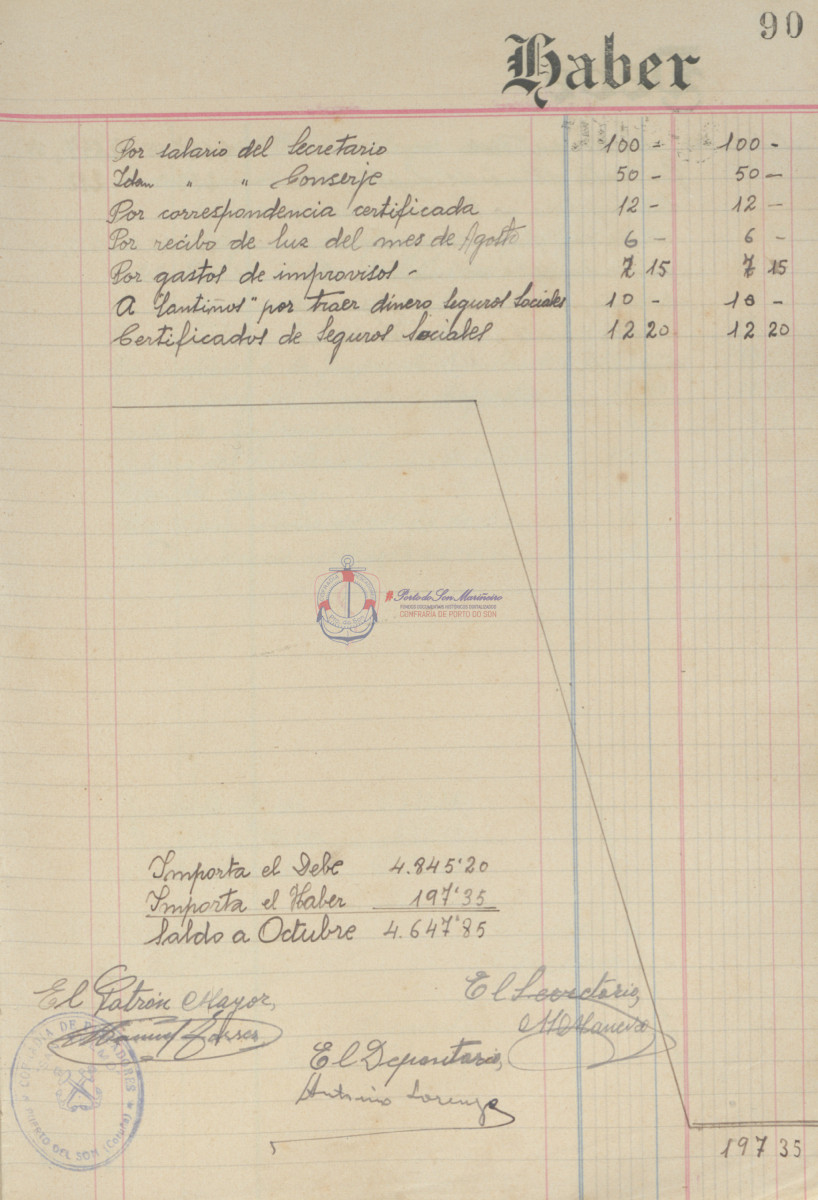 90
Haber
Por salario del Secretario 100 - 100 -
Idem " " Conserje 50 - 50 -
Por correspondencia certificada 12 - 12 -
Por recibo de luz del mes de Agosto 6 - 6 -
Por gastos de improvisos - 7 15 7 15
A "Santiños" por traer dinero Seguros Sociales 10 - 10 -
Certificados de Seguros Sociales 12 20 12 20
Porto do Son Mariñeiro
FONDOS DOCUMENTAIS HISTÓRICOS DIXITALIZADOS
CONFRARÍA DE PORTO DO SON
Importa el Debe 4.845'20
Importa el Haber 197'35
Saldo a Octubre 4.647'85
El Patrón Mayor,
El Secretario,
Manuel
El Depositario,
Antonio Lorenzo
PUERTO DEL SON (Coruña)
197 35